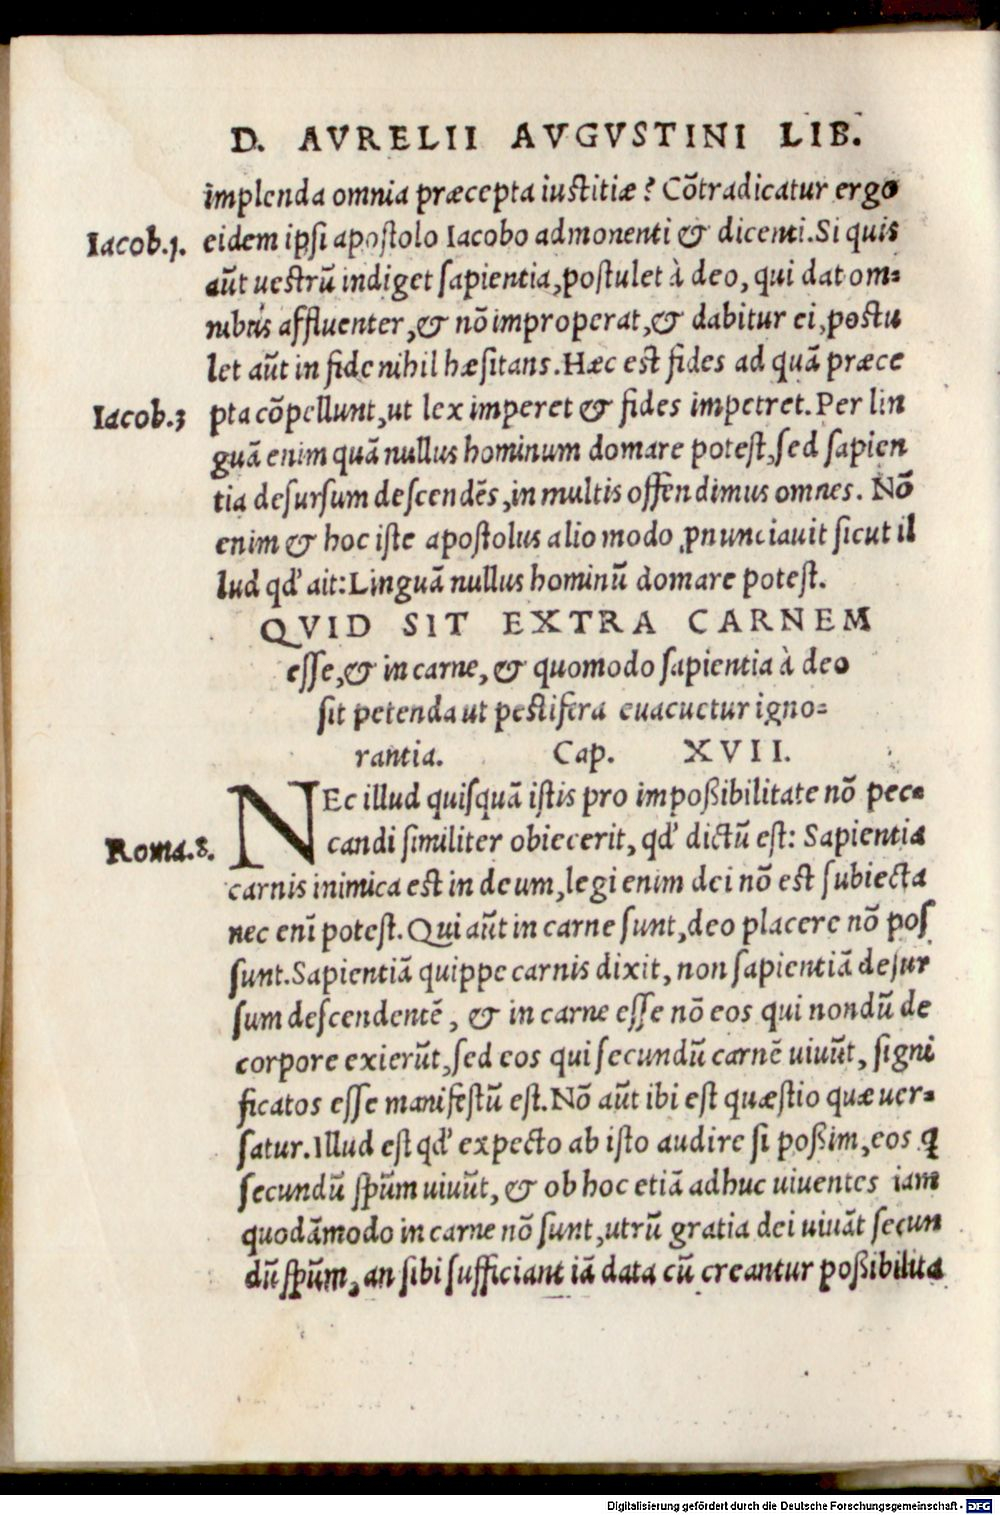 D. AVRELII AVGVSTINI LIB.
implenda omnia præcepta iustitiæ? Cõtradicatur ergo
Iacob.1. eidem ipsi apostolo Iacobo admonenti & dicenti. Si quis
aũt uestrũ indiget sapientia, postulet à deo, qui dat om=
nibus affluenter, & nõ improperat, & dabitur ei, postu
let aũt in fide nihil hæsitans. Hæc est fides ad quã præce
Iacob.3 pta cõpellunt, ut lex imperet & fides impetret. Per lin
guã enim quã nullus hominum domare potest, sed sapien
tia desursum descendẽs, in multis offendimus omnes. Nõ
enim & hoc iste apostolus alio modo ꝓnunciauit sicut il
lud qd' ait: Linguã nullus hominũ domare potest.
QVID SIT EXTRA CARNEM
esse, & in carne, & quomodo sapientia à deo
sit petenda ut pestifera euacuetur igno=
rantia. Cap. XVII.
NEc illud quisquã istis pro impoßibilitate nõ pec=
Roma.8. candi similiter obiecerit, qd' dictũ est: Sapientia
carnis inimica est in deum, legi enim dei nõ est subiecta
nec enĩ potest. Qui aũt in carne sunt, deo placere nõ pos
sunt. Sapientiã quippe carnis dixit, non sapientiã desur
sum descendentẽ, & in carne esse nõ eos qui nondũ de
corpore exierũt, sed eos qui secundũ carnẽ uiuũt, signi
ficatos esse manifestũ est. Nõ aũt ibi est quæstio quæ uer=
satur. Illud est qd' expecto ab isto audire si poßim, eos q̃
secundũ sp̃um uiuũt, & ob hoc etiã adhuc uiuentes iam
quodãmodo in carne nõ sunt, utrũ gratia dei uiuãt secun
dũ sp̃um, an sibi sufficiant iã data cũ creantur poßibilita
Digitalisierung gefördert durch die Deutsche Forschungsgemeinschaft - DFG